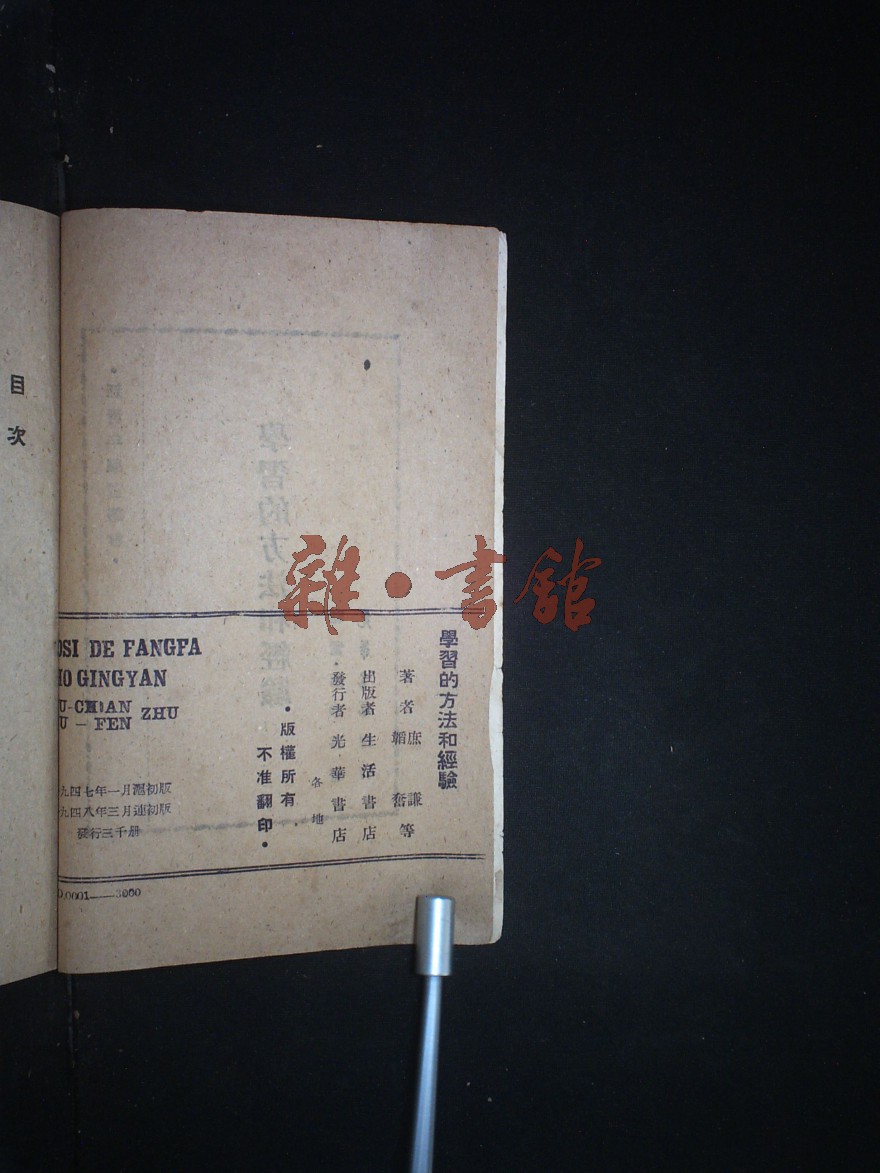 目次
雜·書館
學習的方法和經驗
著者 庶謙
韜奮 等
出版者 生活書店
發行者 光華書店
各地
·版權所有·
不准翻印·
OSI DE FANGFA
HO GINGYAN
U-CHIAN
U-FEN ZHU
九四七年一月滬初版
九四八年三月連初版
發行三千册
0.0001——3000